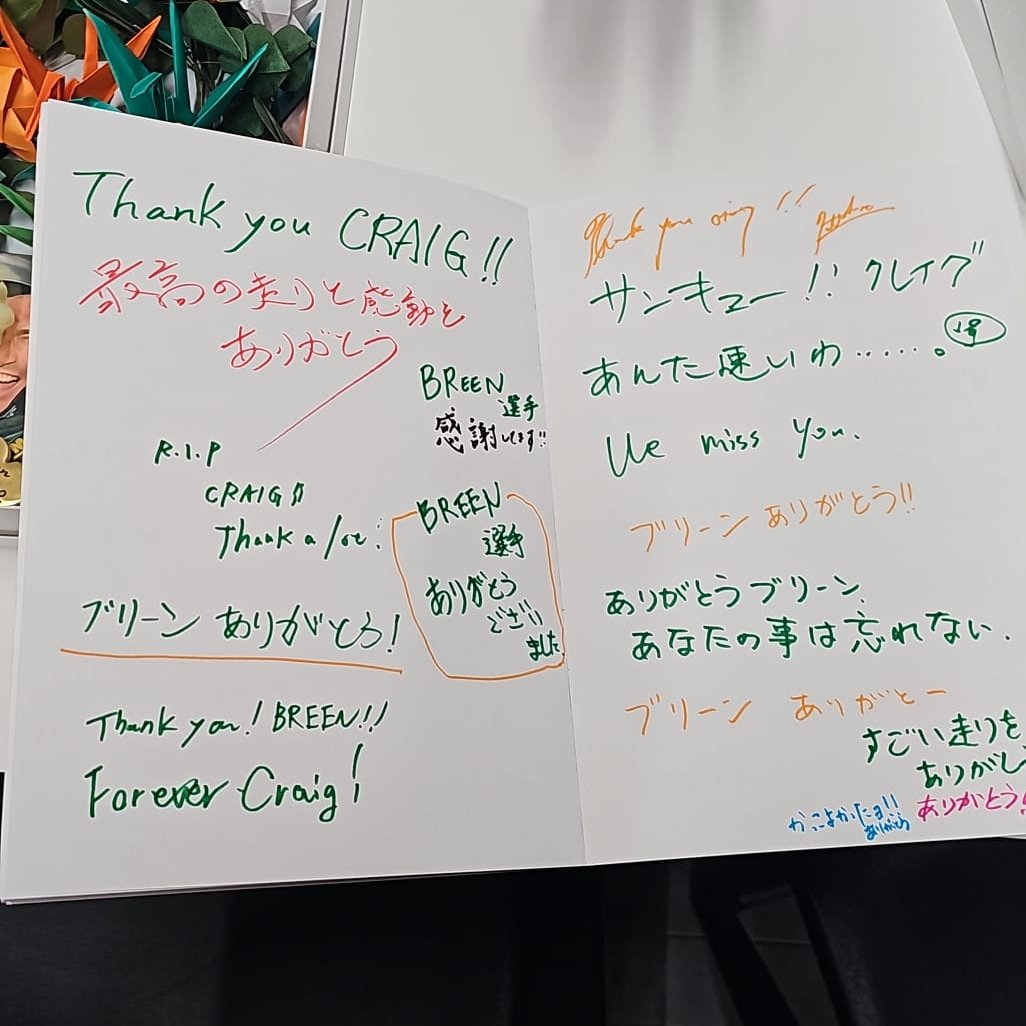 Thank you CRAIG!!
最高の走りと感動を
ありがとう
BREEN
選手
感謝してます!!
R.I.P
CRAIG!!
Thank a lot!
BREEN
選手
ありがとう
ござい
ました
ブリーン ありがとう!
Thank you! BREEN!!
Forever Craig!
Thank you !!
サンキュー!! クレイグ
あんた速いわ……。
We miss you.
ブリーン ありがとう!!
ありがとうブリーン、
あなたの事は忘れない.
ブリーン ありがとー
すごい走りを
ありがと
ありがとう!
かっこよかったよ!!
ありがとう